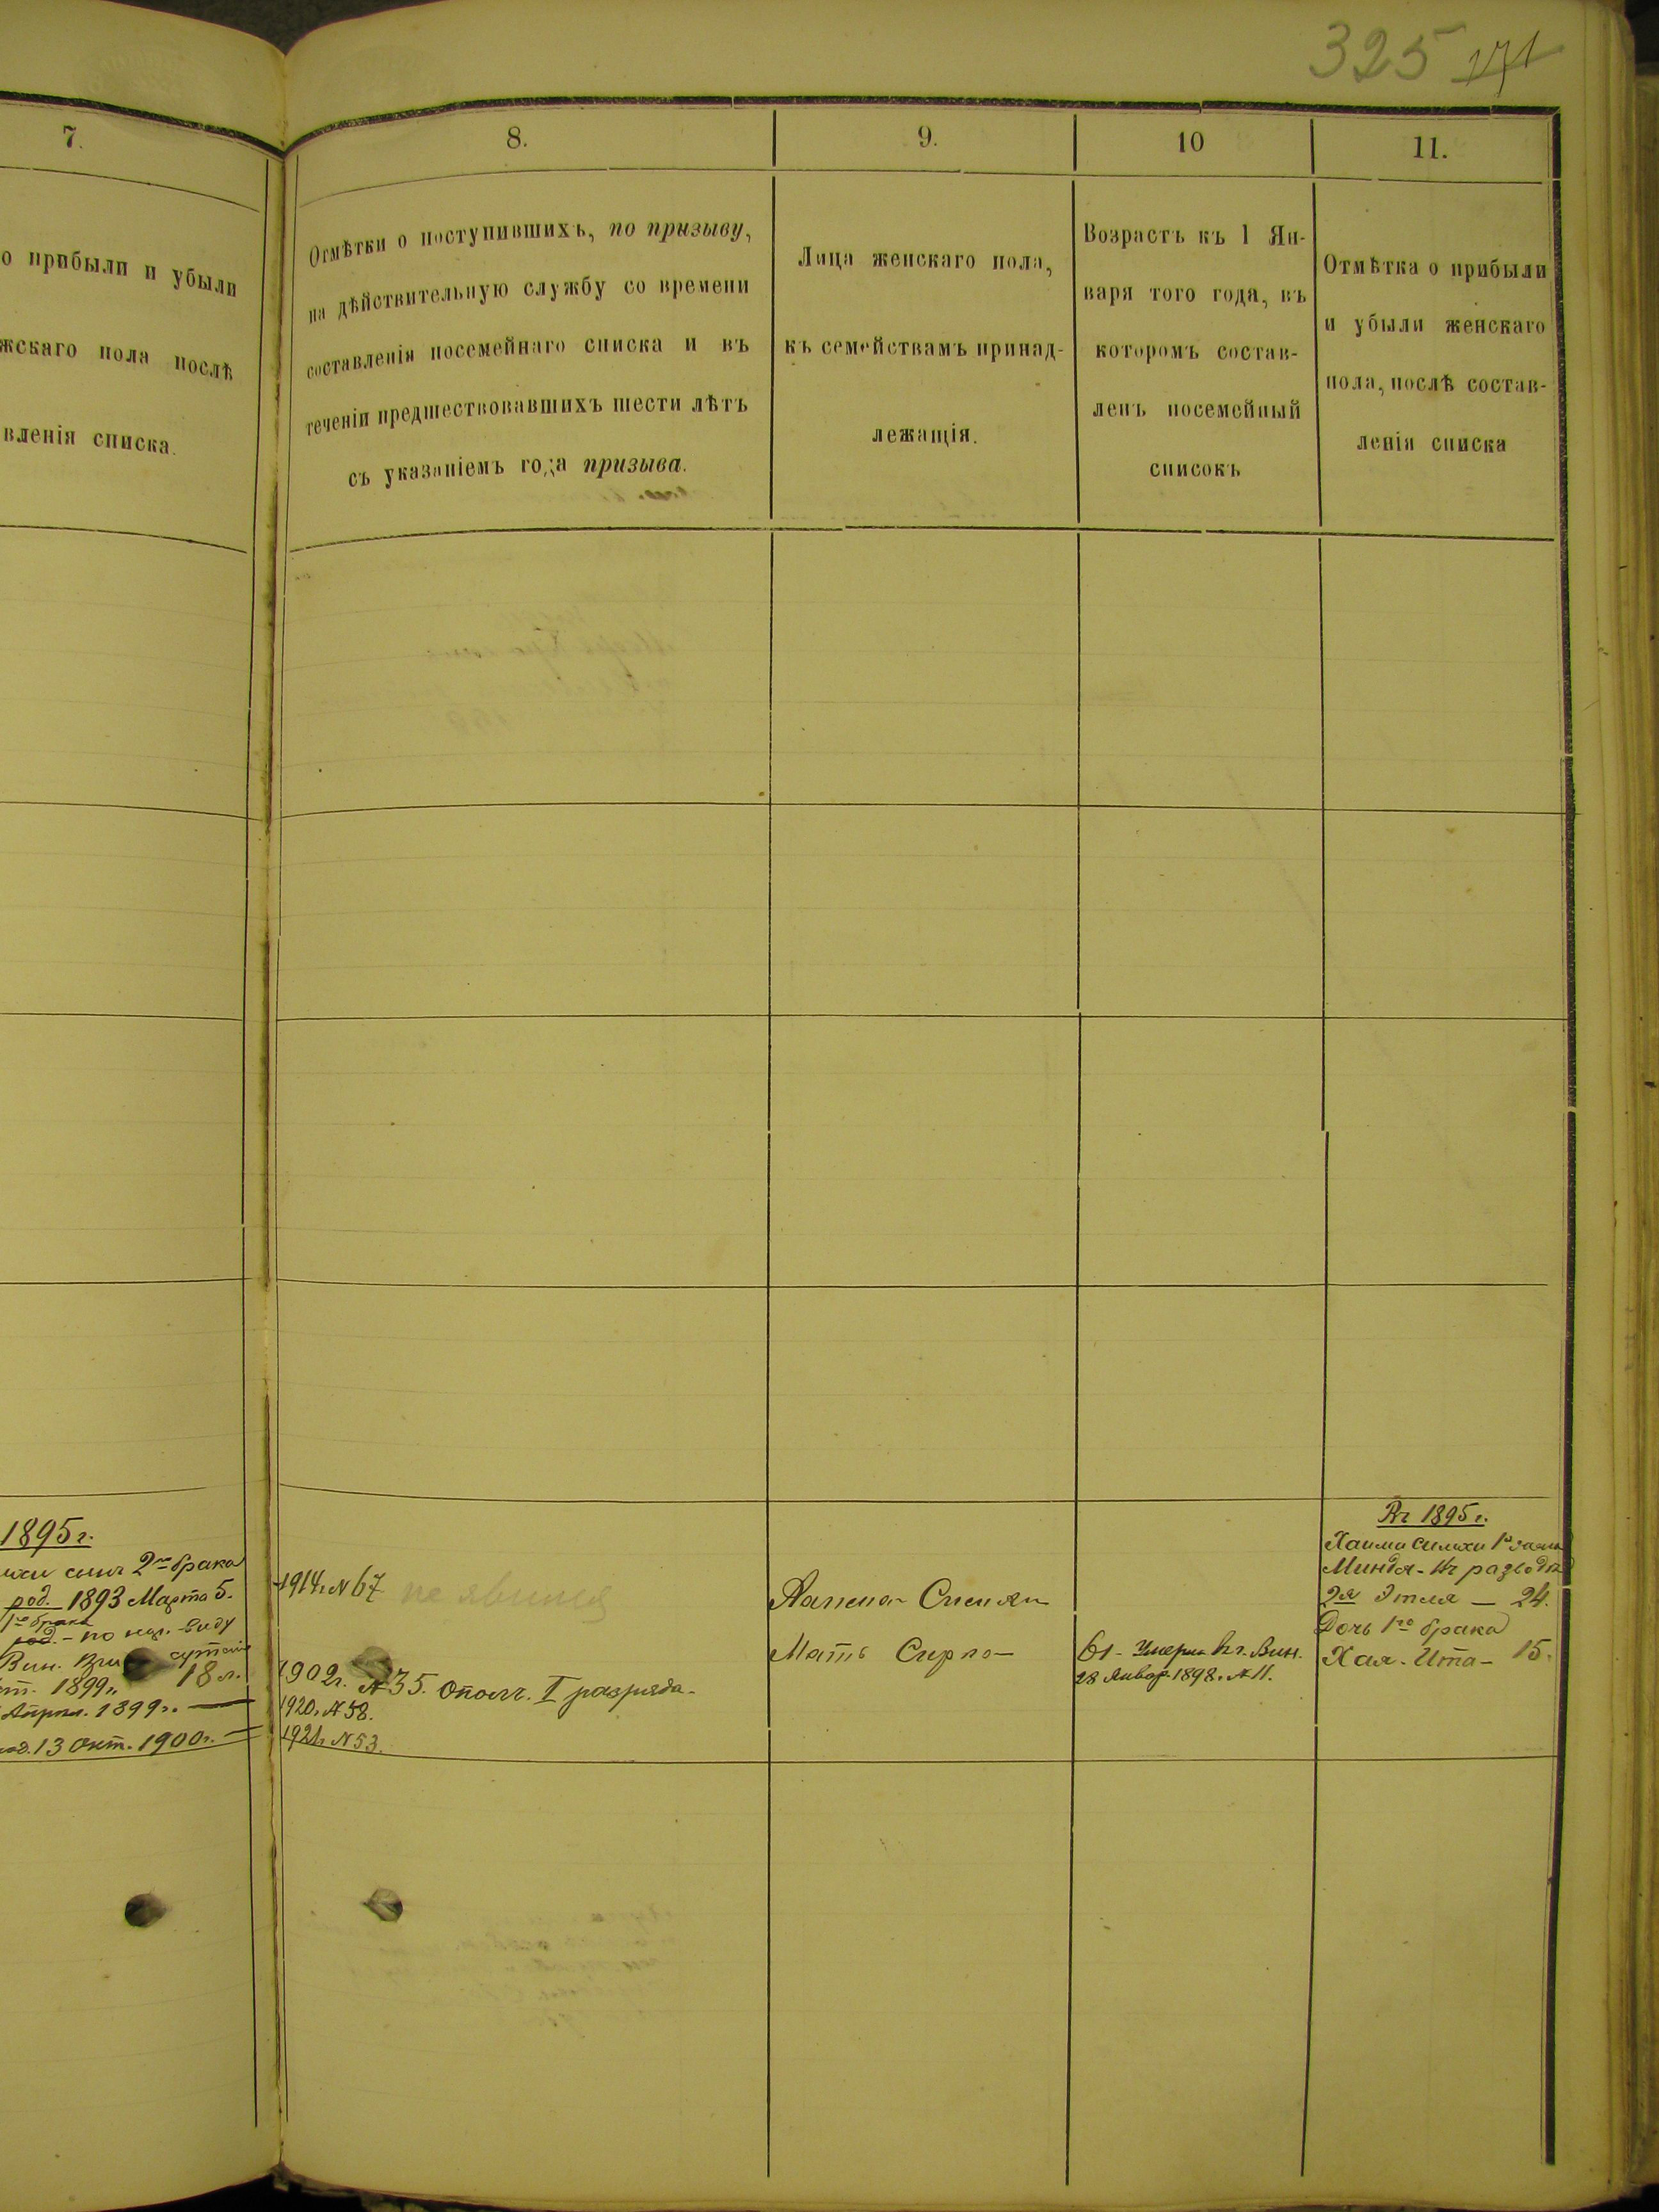 325 171
7.
о прибыли и убыли
жскаго пола послѣ
вленія списка.
8.
Отмѣтки о поступившихъ, по призыву,
на дѣйствительную службу со времени
составленія посемейнаго списка и въ
теченіи предшествовавшихъ шести лѣтъ
съ указаніемъ года призыва.
9.
Лица женскаго пола,
къ семействамъ принад-
лежащія.
10
Возрастъ къ 1 Ян-
варя того года, въ
которомъ состав-
ленъ посемейный
списокъ
11.
Отмѣтка о прибыли
и убыли женскаго
пола, послѣ состав-
ленія списка
1895 г.
сынъ 2го брака
род. 1893 Марта 5.
1го брака
род. - по виду
Вин.
1899 г. 18 л.
Апрѣл. 1899 г. —
род. 13 Окт. 1900 г. —
1914 г. № 67 не явился
1902 г. № 35. Ополч. I разряда
1920 г. № 58.
1921 г. № 53.
Мать Сирла
61 - Умерла въ г. Вин.
28 Январ. 1898 г. № 11.
Въ 1895 г.
Хаима 1я жена
Миндля - въ разводѣ
2я Этля — 24.
Дочь 1го брака
Хая-Ита - 15.